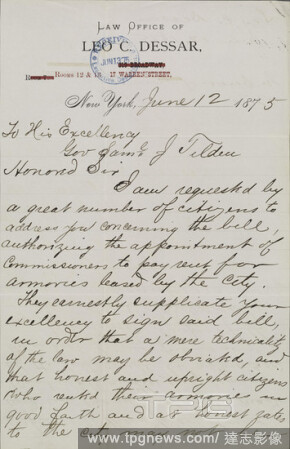 LAW OFFICE OF
LEO C. DESSAR,
BROADWAY,
ROOMS 12 & 13 17 WARREN STREET,
RECEIVED
JUN 13 75
New York, June 12 1875
To His Excellency
Gov Saml J Tilden
Honored Sir
I am requested by
a great number of citizens to
address you concerning the bill,
authorizing the appointment of
Commissioners to pay rent for
armories leased by the city.
They earnestly supplicate your
excellency to sign said bill,
in order that a mere technicality
of the law may be obviated, and
that honest and upright citizens
who rented their armories in
good faith and at honest rates
to the city may not
www.tpgnews.com / 達志影像